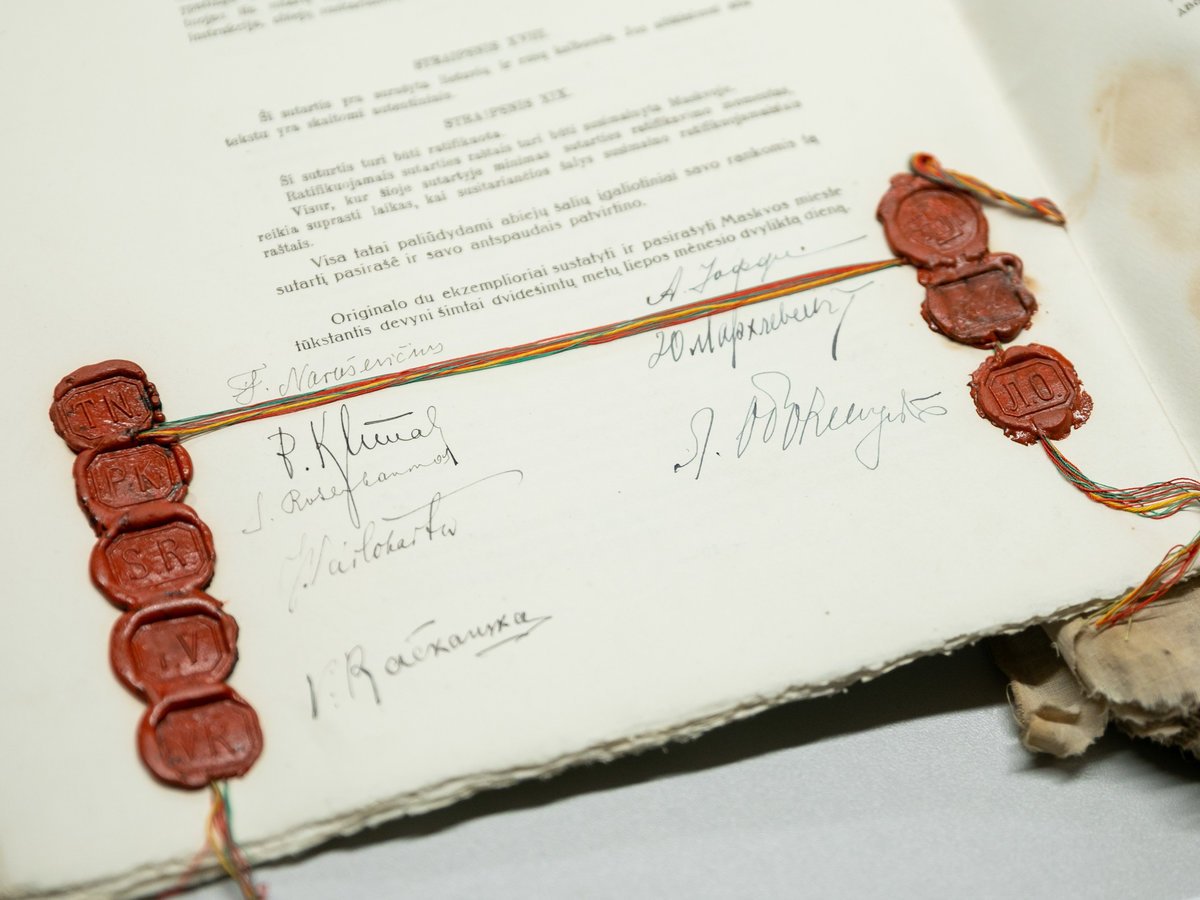 STRAIPSNIS XVIII.
Ši sutartis yra surašyta lietuvių ir rusų kalbomis. Jos aiškinimui abu
tekstu yra skaitomi autentiniais.
STRAIPSNIS XIX.
Ši sutartis turi būti ratifikuota.
Ratifikuojamais sutarties raštais turi būti susimainyta Maskvoje.
Visur, kur šioje sutartyje minimas sutarties ratifikavimo momentas,
reikia suprasti laikas, kai susitariančios šalys susimaino ratifikuojamaisiais
raštais.
Visa tatai paliūdydami abiejų šalių įgaliotiniai savo rankomis tą
sutartį pasirašė ir savo antspaudais patvirtino.
Originalo du ekzemplioriai sustatyti ir pasirašyti Maskvos mieste
tūkstantis devyni šimtai dvidešimtų metų liepos mėnesio dvyliktą dieną.
T. Naruševičius
P. Klimas
S. Rosenbaumas
J. Vailokaitis
V. Račkauskas
А. Іоффе.
Ю Мархлевский
Л. Оболенский
TN
PK
SR
V
VK
Л.О.